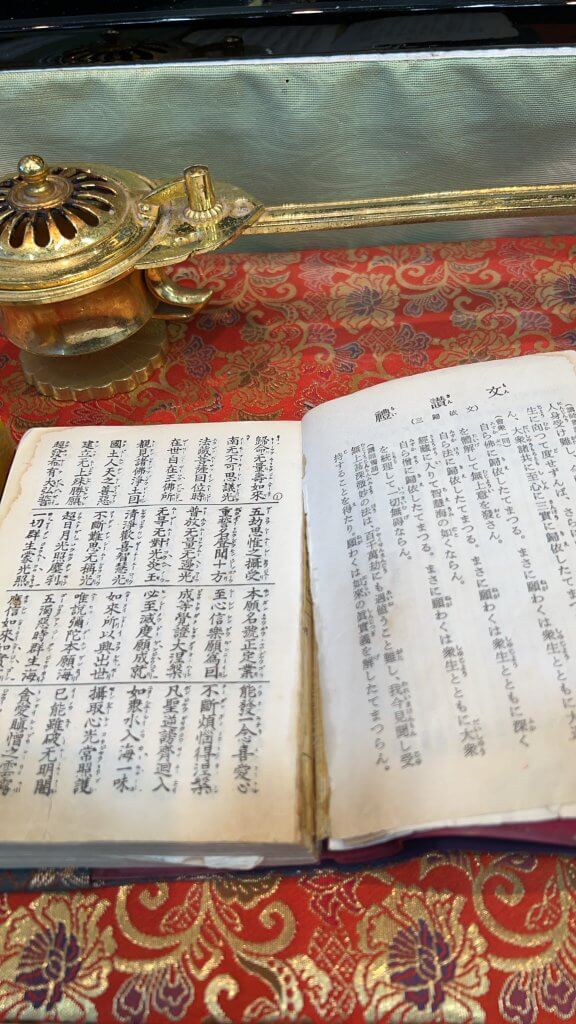 禮讃文
(三歸依文)
人身受け難し、今
生に向って度せずんば、さらに
ん。大衆諸共に至心に三寶に歸依したてまつる。
(會衆一同)
自ら佛に歸依したてまつる。まさに願わくは衆生とともに
を體解して無上意を發さん。
自ら法に歸依したてまつる。まさに願わくは衆生とともに深く
經藏に入りて智慧海の如くならん。
自ら僧に歸依したてまつる。まさに願わくは衆生とともに大衆
を統理して一切無碍ならん。
無上甚深微妙の法は、百千萬劫にも遭遇うこと難し、我今見聞し受
持することを得たり、願わくは如來の眞實義を解したてまつらん。
①
歸命无量壽如來
南无不可思議光
法藏菩薩因位時
在世自在王佛所
覩見諸佛淨土因
國土人天之善惡
建立无上殊勝願
超發希有大弘誓
五劫思惟之攝受
重誓名聲聞十方
普放无量无邊光
无导无對光炎王
清淨歡喜智慧光
不斷難思无稱光
超日月光照塵刹
一切群生蒙光照
本願名號正定業
至心信樂願爲因
成等覺證大涅槃
必至滅度願成就
如來所以興出世
唯說彌陀本願海
五濁惡時群生海
應信如來如實
能發一念喜愛心
不斷煩惱得涅槃
凡聖逆謗齊迴入
如衆水入海一味
攝取心光常照護
已能雖破无明闇
貪愛瞋憎之雲霧